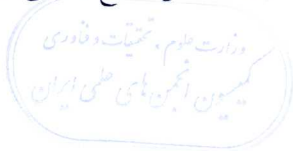 وزارت علوم، تحقیقات و فناوری
کمیسیون انجمن های علمی ایران